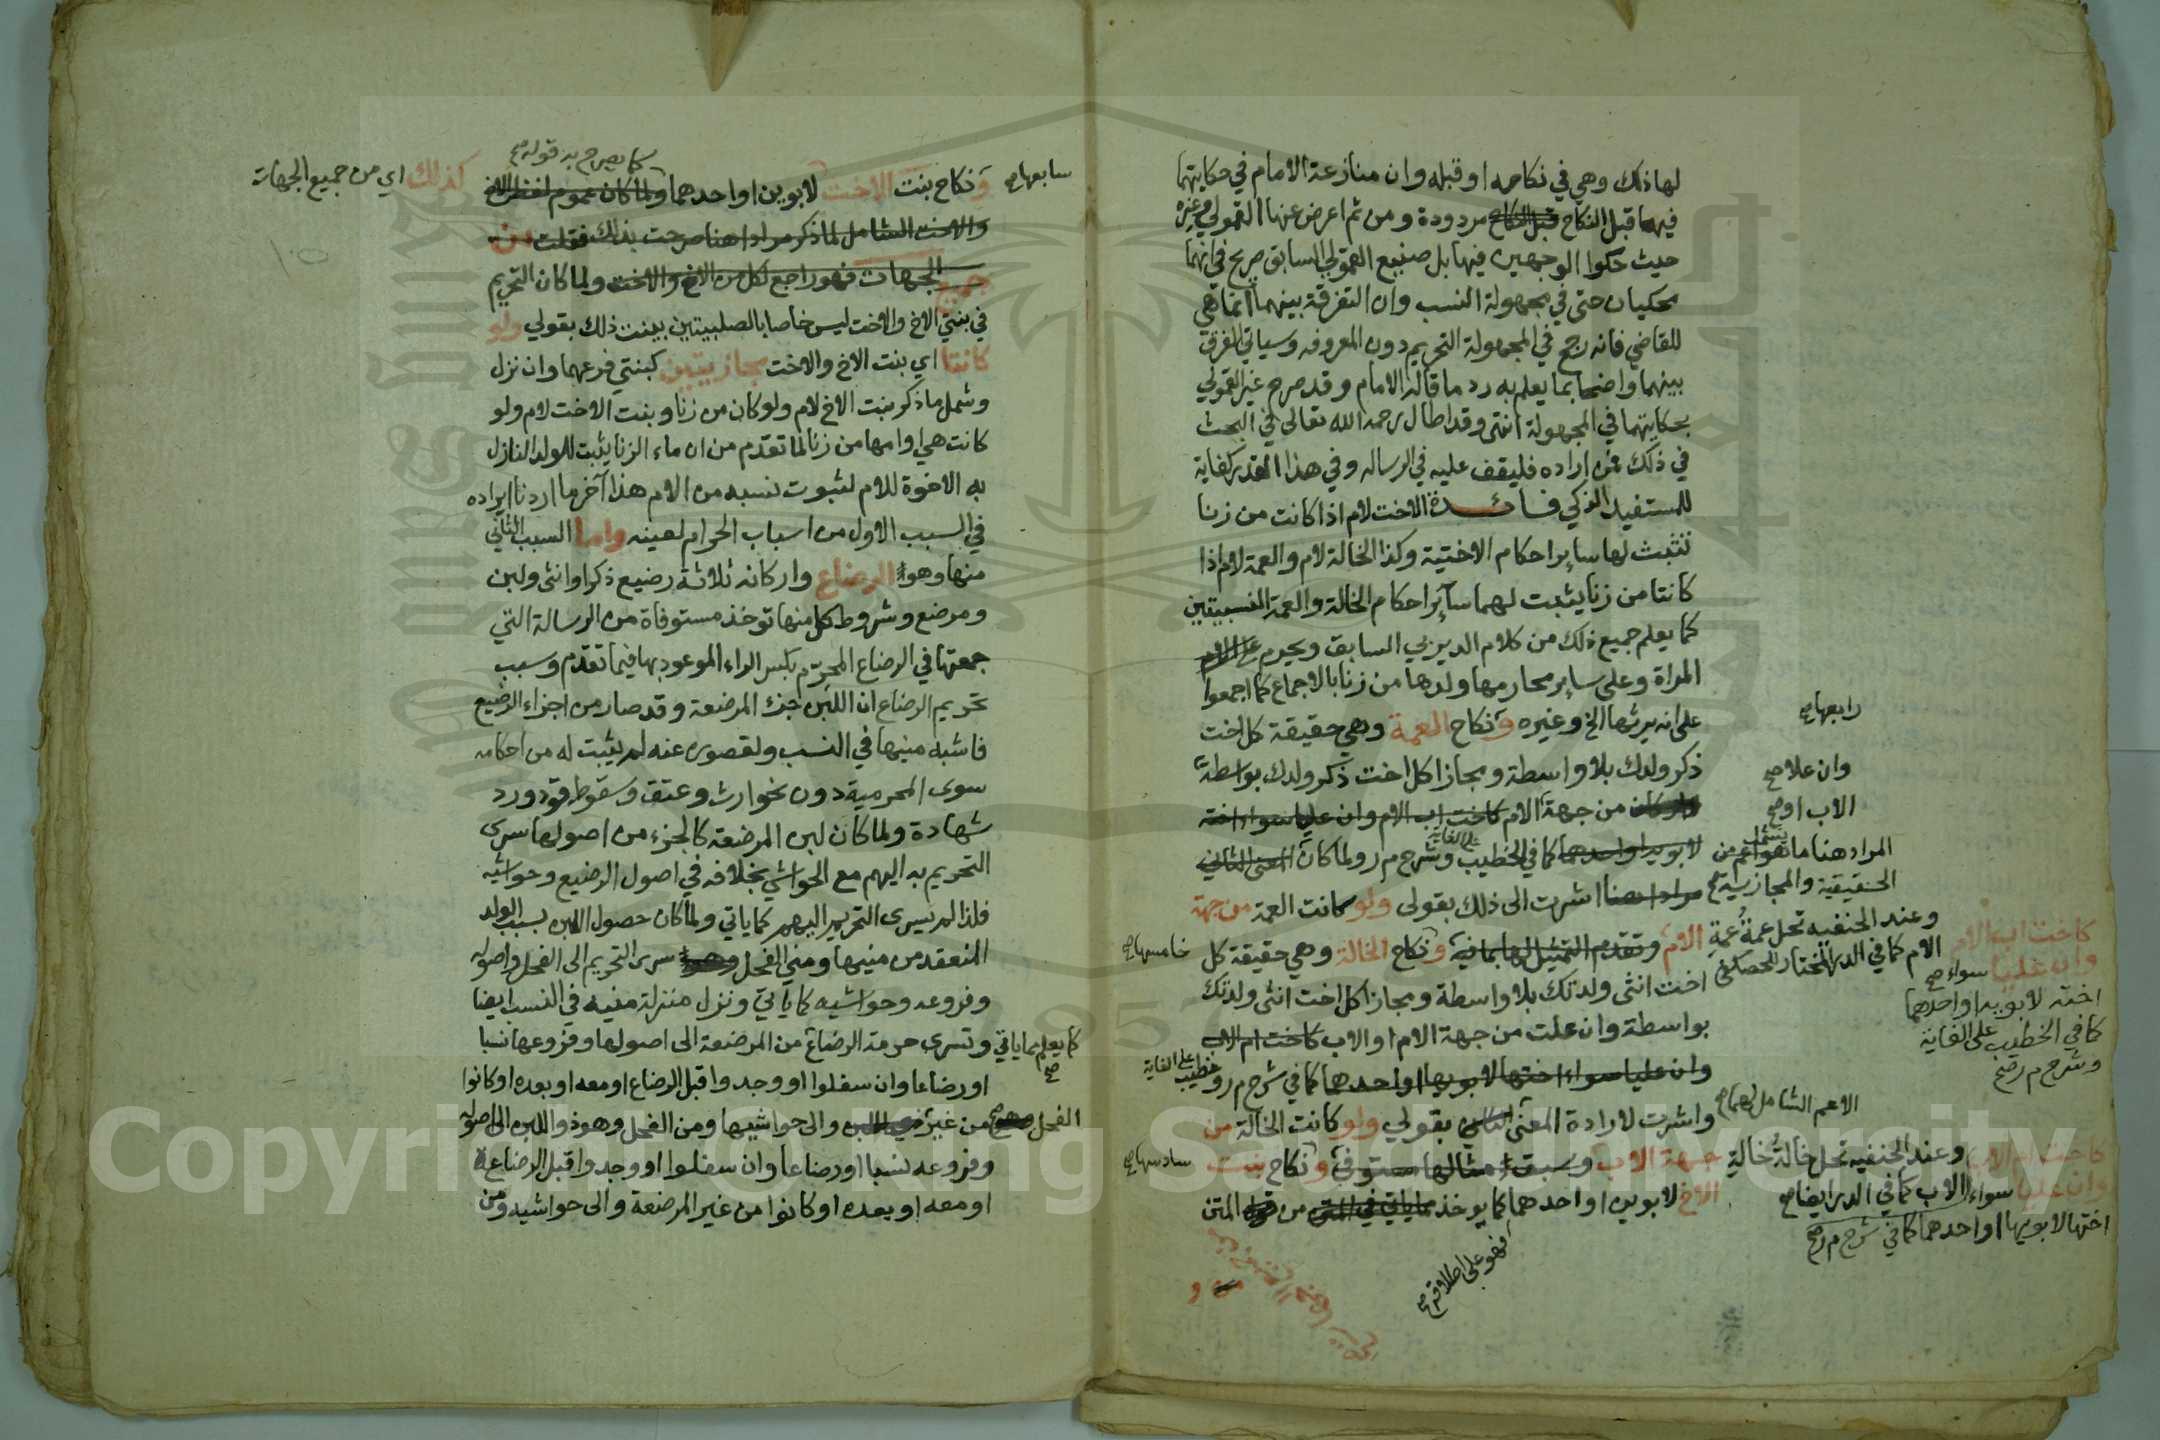 لها ذلك وهي في نكاحه او قبله وان منازعة الامام في حكايتهما
فيها قبل النكاح قبل النكاح مردودة ومن ثم اعرض عنها القمولي وغيره
حيث حكوا الوجهين فيها بل صنيع القمولي السابق صريح في انهما
محكيان حتى في مجهولة النسب وان التفرقة بينهما انما هي
للقاضي فانه رجح في المجهولة التحريم دون المعروفه وسياتي الفرق
بينهما واضحا بما يعلم به رد ما قاله الامام وقد صرح غير القمولي
بحكايتهما في المجهولة انتهى وقد اطال رحمه الله تعالى في البحث
في ذلك فمن اراده فليقف عليه في الرساله وفي هذا القدر كفاية
للمستفيد الذكي فائدة الاخت لام اذا كانت من زنا
تثبت لها ساير احكام الاختية وكذا الخالة لام والعمة لام اذا
كانتا من زنا يثبت لهما سآئر احكام الخالة والعمة النسبيتين
كما يعلم جميع ذلك من كلام الديربي السابق ويحرم على الام
المراة وعلى ساير محارمها ولدها من زنا بالاجماع كما اجمعوا
على انه يرثها الخ وغيره ونكاح العمة وهي حقيقة كل اخت
رابعها صح
ذكر ولدك بلا واسطة ومجازا كل اخت ذكر ولدك بواسطة
وان علا صح
من جهة الام كاخت اب الام وان عليا سواء اخته
الاب او صح
لابويه او احدهما كما في الخطيب وشرح م ر ولما كان المعنى الثاني
على الغاية
المراد هنا ما يشمل هو اعم من
الحقيقية والمجازية صح
مرادا هنا اشرت الى ذلك بقولى ولو كانت العمة من جهة
وعند الحنفيه تحل عمة عمة
الام كما في الدر المختار للحصكفي
الام وتقدم التمثيل لها بما فيه ونكاح الخالة وهي حقيقة كل
خامسها صح
كاخت اب الام
وان عليا سواء صح
اخته لابويه او احدهما
كما في الخطيب على الغاية
وشرح م ر صح
اخت انثى ولدتك بلا واسطة ومجازا كل اخت انثى ولدتك
بواسطة وان علت من جهة الام او الاب كاخت ام الاب
وان عليا سواء اختها لابويها او احدهما كما في شرح م ر و
خطيب على الغاية
واشرت لارادة المعنى الثاني بقولي ولو كانت الخالة من
الاعم الشامل لهما صح
جهة الاب وسبق امثالها مستوفى ونكاح بنت
سادسها صح
وعند الحنفيه تحل خالة خالة
الاب كما في الدر ايضا صح
كاخت ام الاب
وان عليا سواء
اختها لابويها او احدهما كما في شرح م ر صح
الاخ لابوين او احدهما كما يوخذ مما ياتي في المتن من قوله المتن
فهو على اطلاقه صح
سابعها صح
ونكاح بنت الاخت لابوين او احدهما ولما كان عموم لفظ الاخ
كما يصرح به قوله صح
كذلك اي من جميع الجهات
والاخت الشامل لما ذكر مرادا هنا صرحت بذلك فقلت من
جميع الجهات فهو راجع لكل من الاخ والاخت ولما كان التحريم
في بنتي الاخ والاخت ليس خاصا بالصلبيتين بينت ذلك بقولي ولو
كانتا اي بنت الاخ والاخت مجازيتين كبنتي فرعهما وان نزل
وشمل ما ذكر بنت الاخ لام ولو كان من زنا وبنت الاخت لام ولو
كانت هي او امها من زنا لما تقدم من ان ماء الزنا يثبت للولد النازل
به الاخوة للام لثبوت نسبه من الام هذا آخر ما اردنا ايراده
في السبب الاول من اسباب الحرام لعينه واما السبب الثاني
منها وهو الرضاع واركانه ثلاثة رضيع ذكرا او انثى ولبن
ومرضع وشروط كل منها توخذ مستوفاة من الرسالة التي
جمعتها في الرضاع المحرم بكسر الراء الموعود بها فيما تقدم وسبب
تحريم الرضاع ان اللبن جزء المرضعة وقد صار من اجزاء الرضيع
فاشبه منيها في النسب ولقصوره عنه لم يثبت له من احكامه
سوى المحرمية دون نحو ارث وعتق وسقوط قود ورد
شهادة ولما كان لبن المرضعة كالجزء من اصولها سرى
التحريم به اليهم مع الحواشي بخلافه في اصول الرضيع وحواشيه
فلذا لم يسرى التحريم اليهم كما ياتي ولما كان حصول اللبن بسبب الولد
المنعقد من منيها ومني الفحل وهو سرى التحريم الى الفحل واصوله
وفروعه وحواشيه كما ياتي ونزل منزلة منيه في النسب ايضا
كما يعلم مما ياتي صح
وتسرى حرمة الرضاع من المرضعة الى اصولها وفروعها نسبا
او رضاعا وان سفلوا او وجدوا قبل الرضاع او معه او بعده او كانوا
الفحل صح
من غير ذي اللبن والى حواشيها ومن الفحل وهو ذو اللبن الى اصوله
وفروعه نسبا او رضاعا وان سفلوا او وجدوا قبل الرضاعة
او معه او بعده او كانوا من غير المرضعة والى حواشيه ومن
Copyright © King Saud University